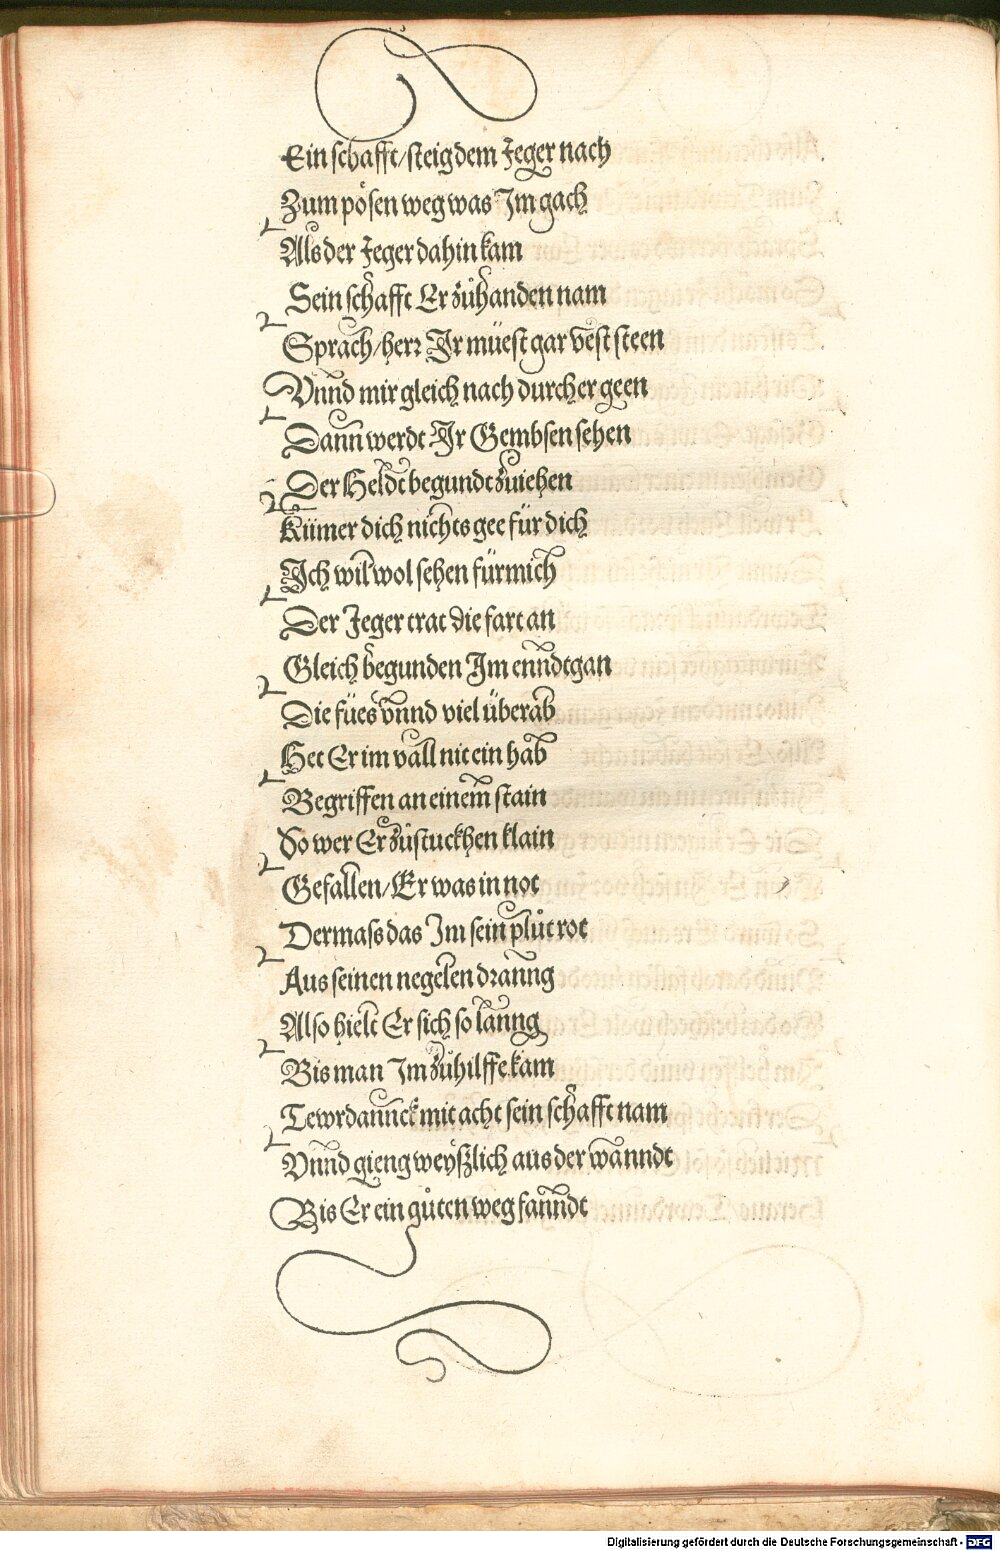 Ein schafft/steig dem Jeger nach
Zum pösen weg was Im gach
Als der Jeger dahin kam
Sein schafft Er zůhanden nam
Sprach/herr Ir müest gar vest steen
Vnnd mir gleich nach durcher geen
Dann werdt Ir Gembsen sehen
Der Heldt begundt zuiehen
Kümer dich nichts gee für dich
Ich wil wol sehen für mich
Der Jeger trat die fart an
Gleich begunden Im enndtgan
Die fües vnnd viel überab
Het Er im vall nit ein hab
Begriffen an einem stain
So wer Er zůstuckhen klain
Gefallen/Er was in not
Dermass das Im sein plůt rot
Aus seinen negelen dranng
Also hielt Er sich so lanng
Bis man Im zůhilffe kam
Tewrdannck mit acht sein schafft nam
Vnnd gieng weyszlich aus der wanndt
Bis Er ein gůten weg fanndt
Digitalisierung gefördert durch die Deutsche Forschungsgemeinschaft - DFG